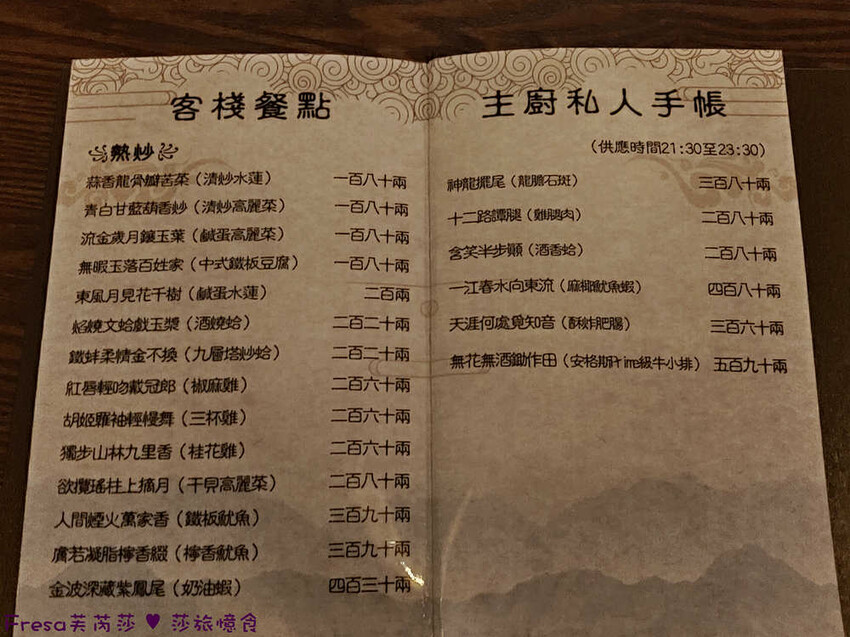 客棧餐點
熱炒
蒜香龍骨瓣苦菜（清炒水蓮） 一百八十兩
青白甘藍葫香炒（清炒高麗菜） 一百八十兩
流金歲月鑲玉葉（鹹蛋高麗菜） 一百八十兩
無暇玉落百姓家（中式鐵板豆腐） 一百八十兩
東風月見花千樹（鹹蛋水蓮） 二百兩
焰燒文蛤戲玉漿（酒燒蛤） 二百二十兩
鐵蚌柔情金不換（九層塔炒蛤） 二百二十兩
紅唇輕吻戴冠郎（椒麻雞） 二百六十兩
胡姬羅袖輕慢舞（三杯雞） 二百六十兩
獨步山林九里香（桂花雞） 二百六十兩
欲攬瑤柱上摘月（干貝高麗菜） 二百八十兩
人間煙火萬家香（鐵板魷魚） 三百九十兩
膚若凝脂檸香綴（檸香魷魚） 三百九十兩
金波深藏紫鳳尾（奶油蝦） 四百三十兩
主廚私人手帳
（供應時間21:30至23:30）
神龍擺尾（龍膽石斑） 三百八十兩
十二路譚腿（雞腿肉） 二百八十兩
含笑半步顛（酒香蛤） 二百八十兩
一江春水向東流（麻椰魷魚蝦） 四百八十兩
天涯何處覓知音（酥炸肥腸） 三百六十兩
無花無酒鋤作田（安格斯Prime級牛小排） 五百九十兩
Fresa芙芮莎 ♥ 莎旅憶食